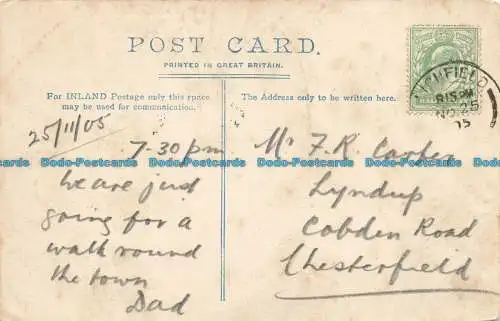 POST CARD.
PRINTED IN GREAT BRITAIN.
For INLAND Postage only this space
may be used for communication.
The Address only to be written here.
25/11/05
7-30 pm
We are just
going for a
walk round
the town
Dad
Mr F. R. Carter
Lyndup
Cobden Road
Chesterfield
8 15 PM
NO 25
05
Dodo-Postcards Dodo-Postcards Dodo-Postcards Dodo-Postcards Dodo-Postcards